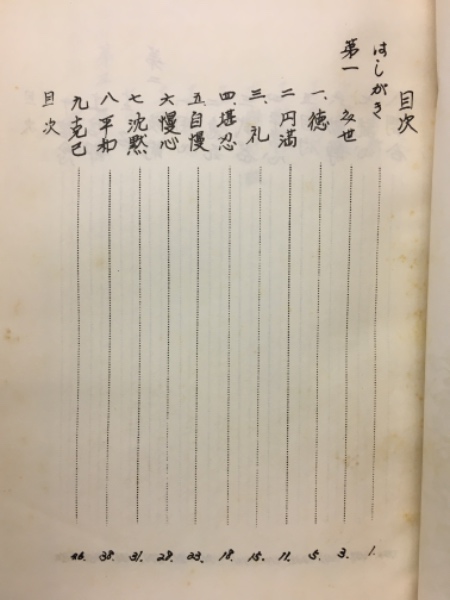 目次
はしがき 1.
第一 処世 3.
一、徳 5.
二 円満 11.
三、礼 15.
四、堪忍 18.
五、自慢 23.
六 慢心 28.
七 沈黙 31.
八 平和 38.
九 克己 46.
目次